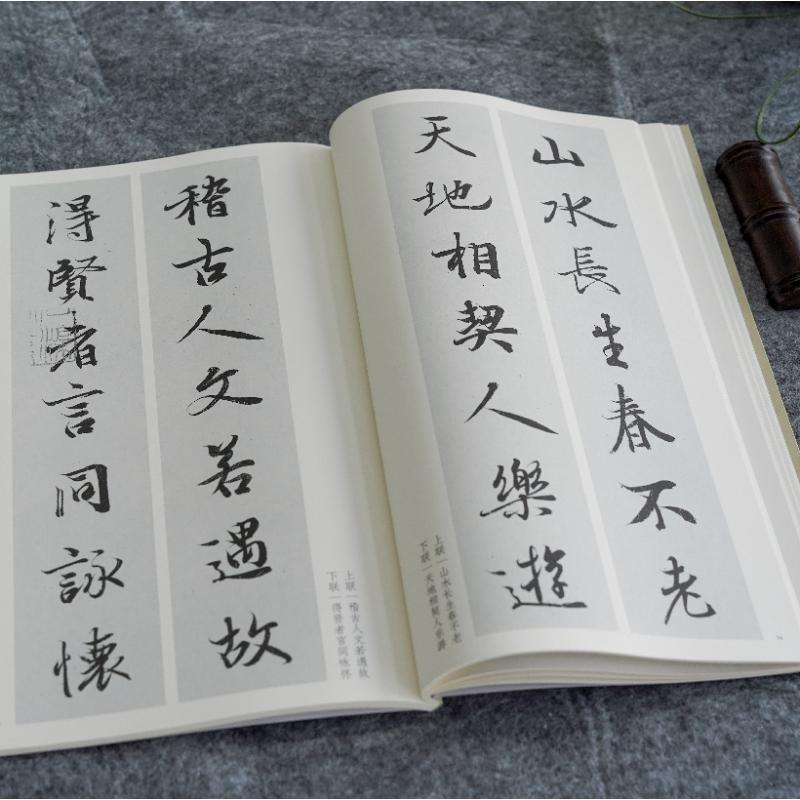 山水長生春不老
天地相契人樂遊
上联｜山水长生春不老
下联｜天地相契人乐游
稽古人文若遇故
得賢者言同詠懷
上联｜稽古人文若遇故
下联｜得贤者言同咏怀